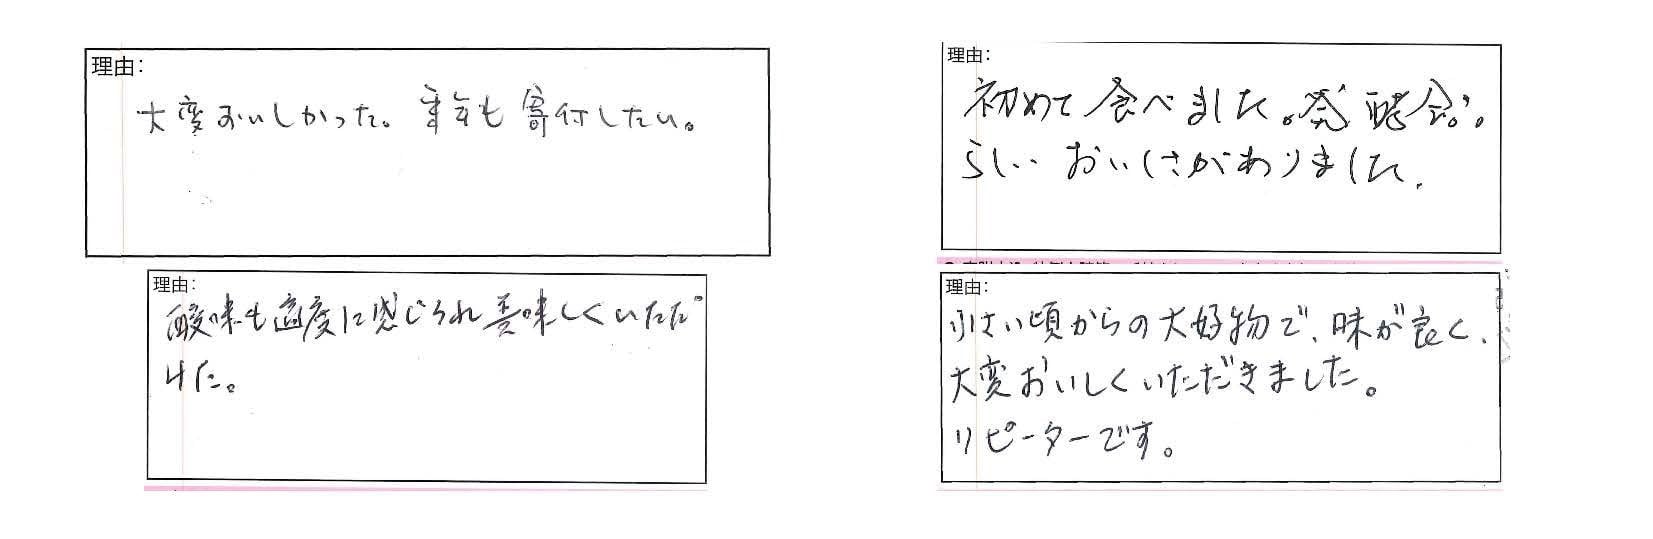 理由:
大変おいしかった。来年も寄付したい。
理由:
酸味も適度に感じられ美味しくいただ
けた。
理由:
初めて食べました。発酵食。
らしい おいしさがありました.
理由:
小さい頃からの大好物で、味が良く、
大変おいしくいただきました。
リピーターです。